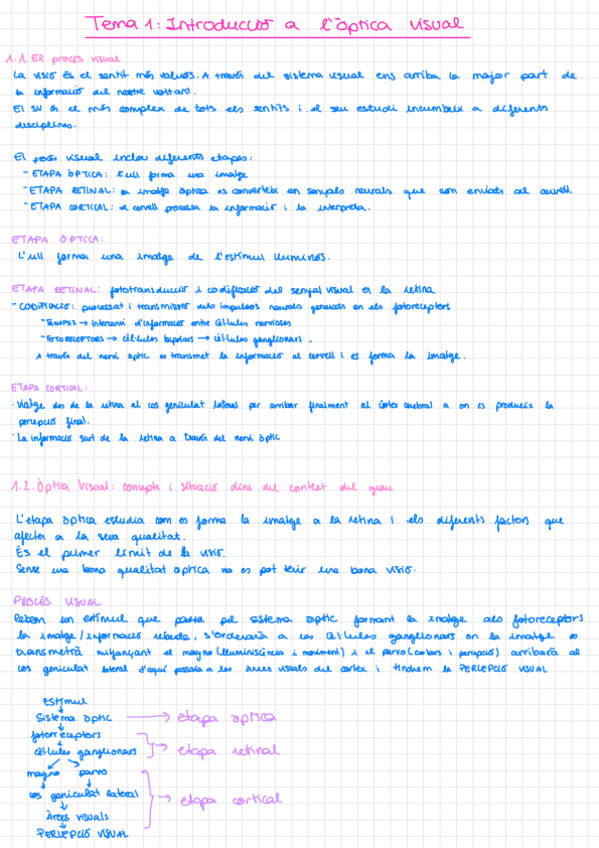 Tema 1: Introducció a l'òptica visual
1.1. El procés visual
La visió és el sentit més valuós. A través del sistema visual ens arriba la major part de
la informació del nostre voltant.
El SV és el més complex de tots els sentits i el seu estudi incumbeix a diferents
disciplines.
El procés visual inclou diferents etapes:
- ETAPA ÒPTICA: l'ull forma una imatge
- ETAPA RETINAL: la imatge òptica es converteix en senyals neurals que son enviats al cervell.
- ETAPA CORTICAL: el cervell processa la informació i la interpreta.
ETAPA ÒPTICA:
L'ull forma una imatge de l'estímul lluminós.
ETAPA RETINAL: fototransducció i codificació del senyal visual en la retina
- CODIFICACIÓ: processat i transmissió dels impulsos neurals generats en els fotoreceptors
- SINAPSIS → intercanvi d'informació entre cèl·lules nervioses
- FOTORECEPTORS → cèl·lules bipolars → cèl·lules ganglionars.
A través del nervi òptic es transmet la informació al cervell i es forma la imatge.
ETAPA CORTICAL:
· Viatge des de la retina al cos geniculat lateral per arribar finalment al còrtex cerebral a on es produeix la
percepció final.
· La informació surt de la retina a través del nervi òptic
1.2. Òptica Visual: concepte i situació dins del context del grau
L'etapa optica estudia com es forma la imatge a la retina i els diferents factors que
afecten a la seva qualitat.
És el primer límit de la visió.
Sense una bona qualitat optica no es pot tenir una bona visió.
PROCÉS VISUAL
Rebem un estímul que passa pel sistema òptic formant la imatge als fotoreceptors
la imatge/informació rebuda, s'ordenarà a les cèl·lules ganglionars on la imatge es
transmetrà mitjançant el magno (lluminiscència i moviment) i el parvo (colors i percepció) arribarà al
cos geniculat lateral d'aquí passarà a les àrees visuals del cortex i tindrem la PERCEPCIÓ VISUAL
Estímul
Sistema òptic → etapa òptica
fotorreceptors
cèl·lules ganglionars → etapa retinal
magno parvo
cos geniculat lateral → etapa cortical
Àrees visuals
PERCEPCIÓ VISUAL